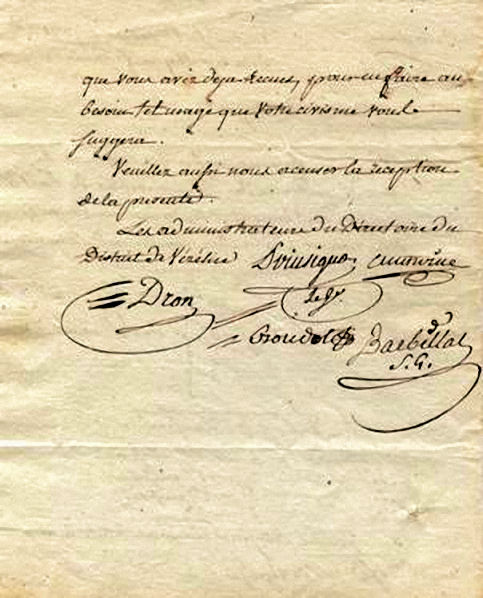 que vous avez deja recues, pour en faire au
besoin tel usage que votre civisme vous le
suggera.
Veuillez aussi nous accuser la reception
de la presente.
Les administrateurs du Directoire du
District de Vézélise
Dron
Barbillat
S.G.